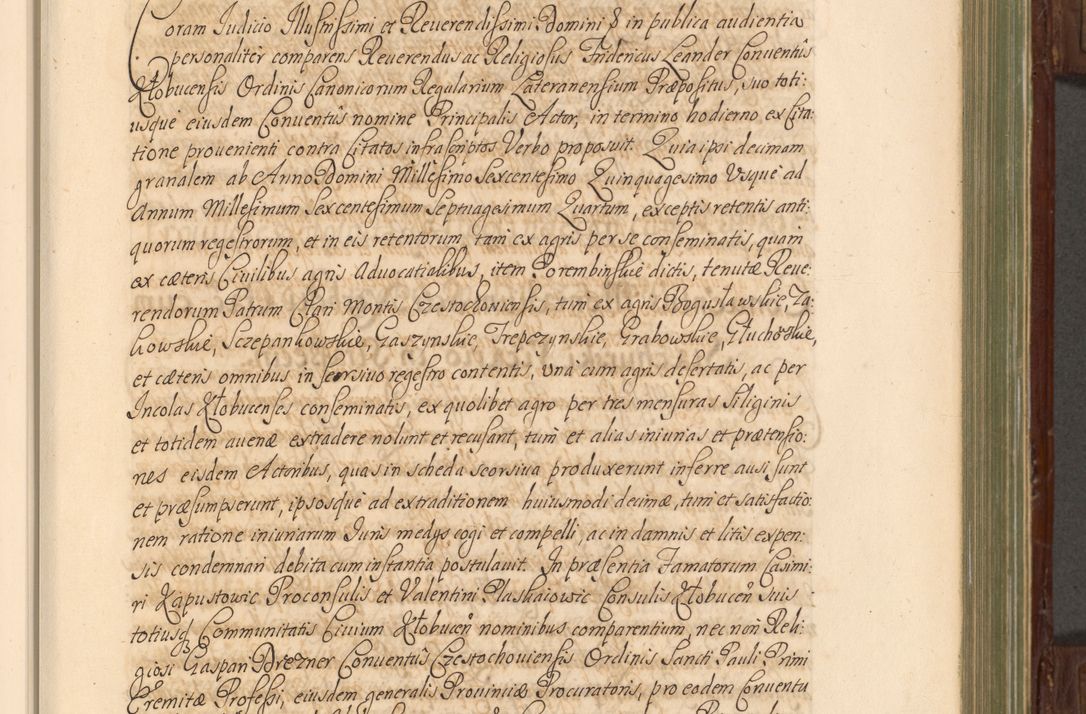 Coram Iudicio Illustrissimi et Reuerendissimi Domini & in publica audientia
personalitèr comparens Reuerendus ac Religiosus Fridericus Leander Conventûs
Kłobucensis Ordinis Canonicorum Regularium Lateranensium Præpositus, suo toti:
usquè eiusdem Conventûs nomine Principalis Actor, in termino hodierno ex Cita:
tione prouenienti contra Citatos infrascriptos Verbo proposuit. Quia ipsi decimam
granalem ab Anno Domini Millesimo Sexcentesimo Quinquagesimo Usquè ad
Annum Millesimum Sexcentesimum Septuagesimum Quartum, exceptis retentis anti:
quorum regestrorum, et in eis retentorum, tam ex agris per se conseminatis, quam
ex cæteris Ciuilibus agris Aduocatialibus, item Porembinskie dictis, tenutæ Reue:
rendorum Patrum Clari Montis Czestochouiensis, tum ex agris Bogusławskie, Za:
kowskie, Sczepankowskie, Gaszynskie, Trepczynskie, Grabowskie, Głuchowskie,
et cæteris omnibus in seorsiuo regestro contentis, Unà cum agris desertatis, ac per
Incolas Kłobucenses conseminatis, ex quolibet agro per tres mensuras Siliginis
et totidem auenæ extradere nolunt et recusant, tum et alias iniurias et prætensio:
nes eisdem Actoribus, quas in scheda seorsiua produxerunt inferre ausi sunt
et præsumpserunt, ipsosquè ad extraditionem huiusmodi decimæ, tum et satisfactio:
nem ratione iniuriarum Iuris medijs cogi et compelli, ac in damnis et litis expen:
sis condemnari debita cum instantia postulauit. In præsentia Famatorum Casimi:
ri Kapustowic Proconsulis et Valentini Płaskaiowic Consulis Kłobucen suis
totiusq Communitatis Ciuium Kłobucen nominibus comparentium, nec non Reli:
giosi Gaspari Drezner Conventûs Czestochouiensis Ordinis Sancti Pauli Primi
Eremitæ Professi, eiusdem generalis Prouinciæ Procuratoris, pro eodem Conventu